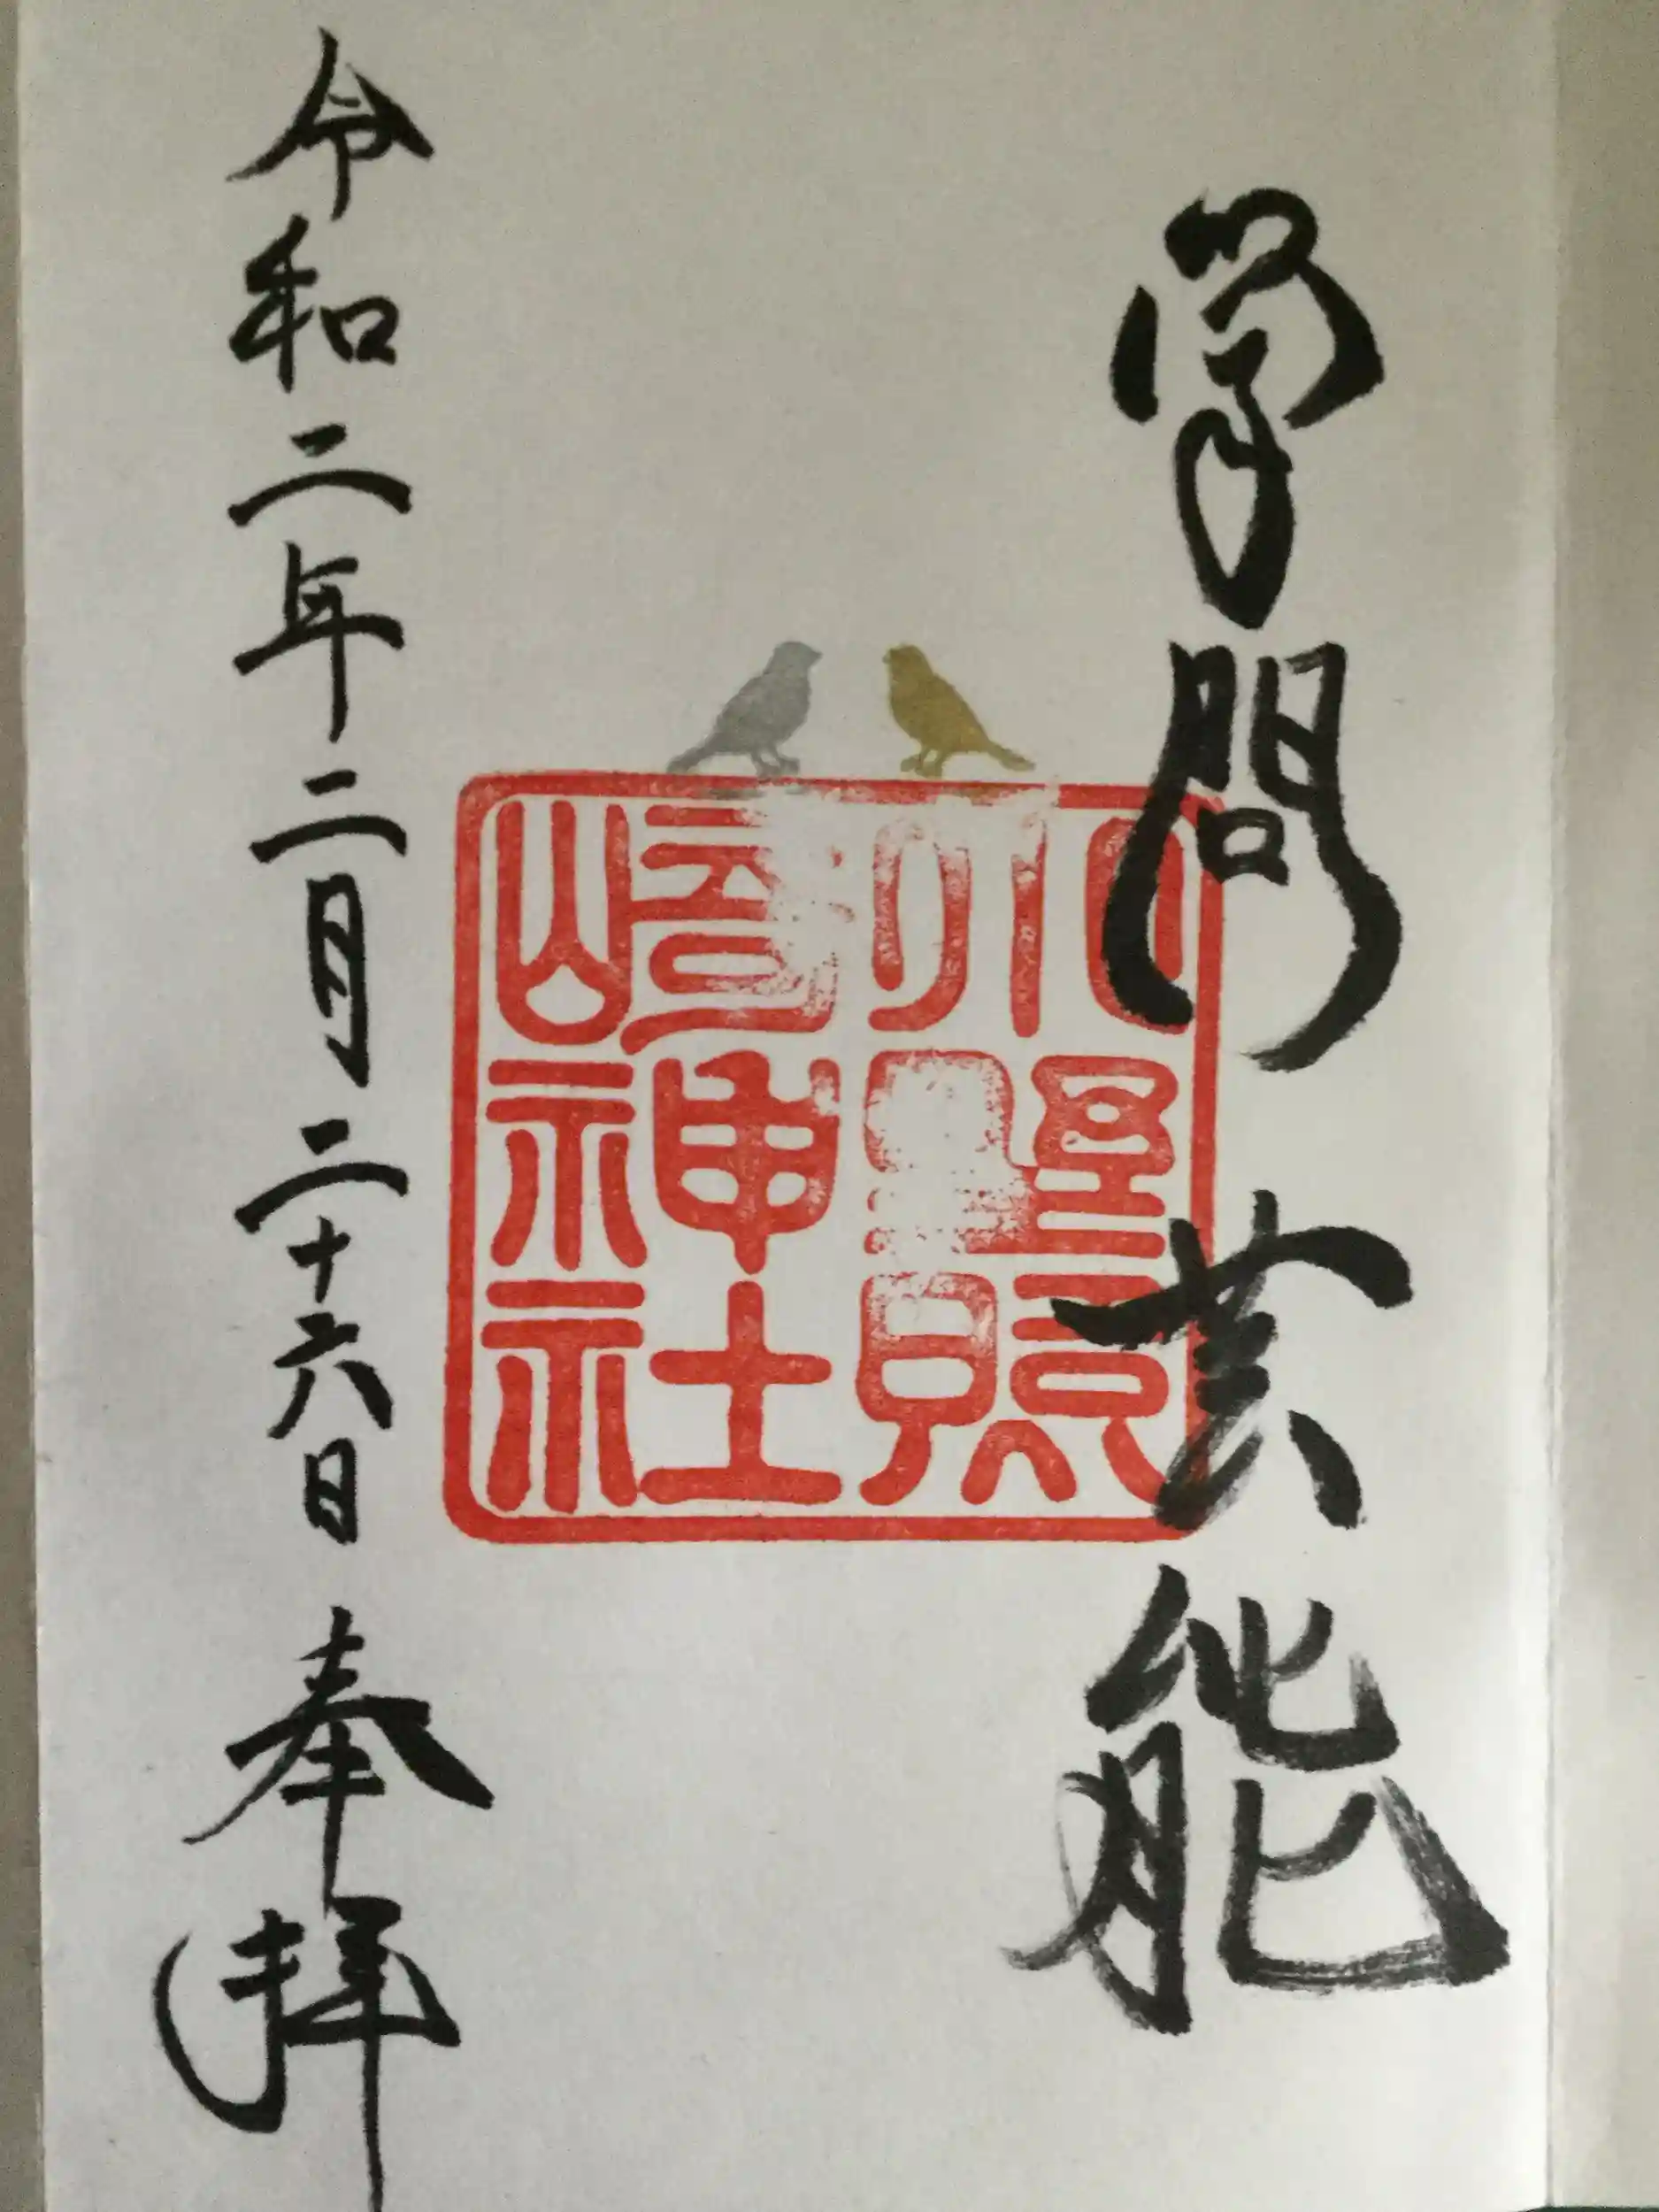 学問 芸能
小野照
崎神社
令和二年二月二十六日 奉拝